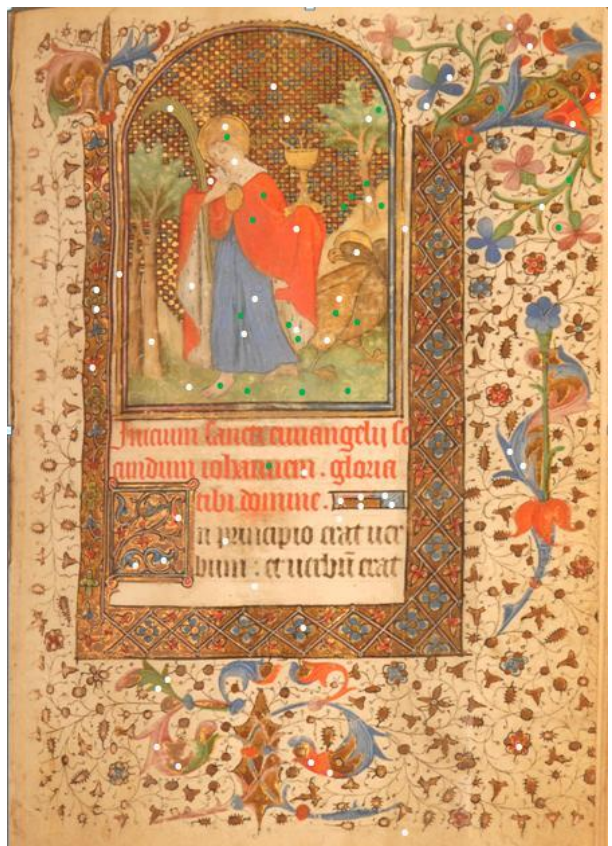 Inicium sancti euuangelij se
cundum iohannem. gloria
tibi domine.
In principio erat uer
bum : et uerbũ erat